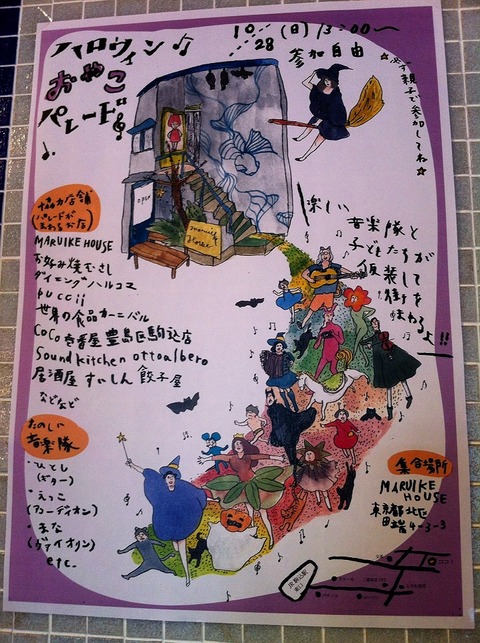 ハロウィン
おやこ
パレード
10/28
(日) 13:00〜
参加自由
☆ぜひ親子で参加してね☆
楽しい
音楽隊と
子どもたちが
仮装をして
街を練りわるよ!!
協力店舗
(パレードが
まわるお店)
MARUIKE HOUSE
お好み焼むさし
ダイニングハルコマ
puccii
世界の食品カーニバル
CoCo壱番屋 豊島区駒込店
Sound kitchen ottoalbero
居酒屋 すいしん 餃子屋
などなど
open
maruike
House
たのしい
音楽隊
・ひとし
(ギター)
・えつこ
(アコーディオン)
・まな
(ヴァイオリン)
etc.
集合場所
MARUIKE
HOUSE
東京都北区
田端4-3-3
JR駒込駅
東口